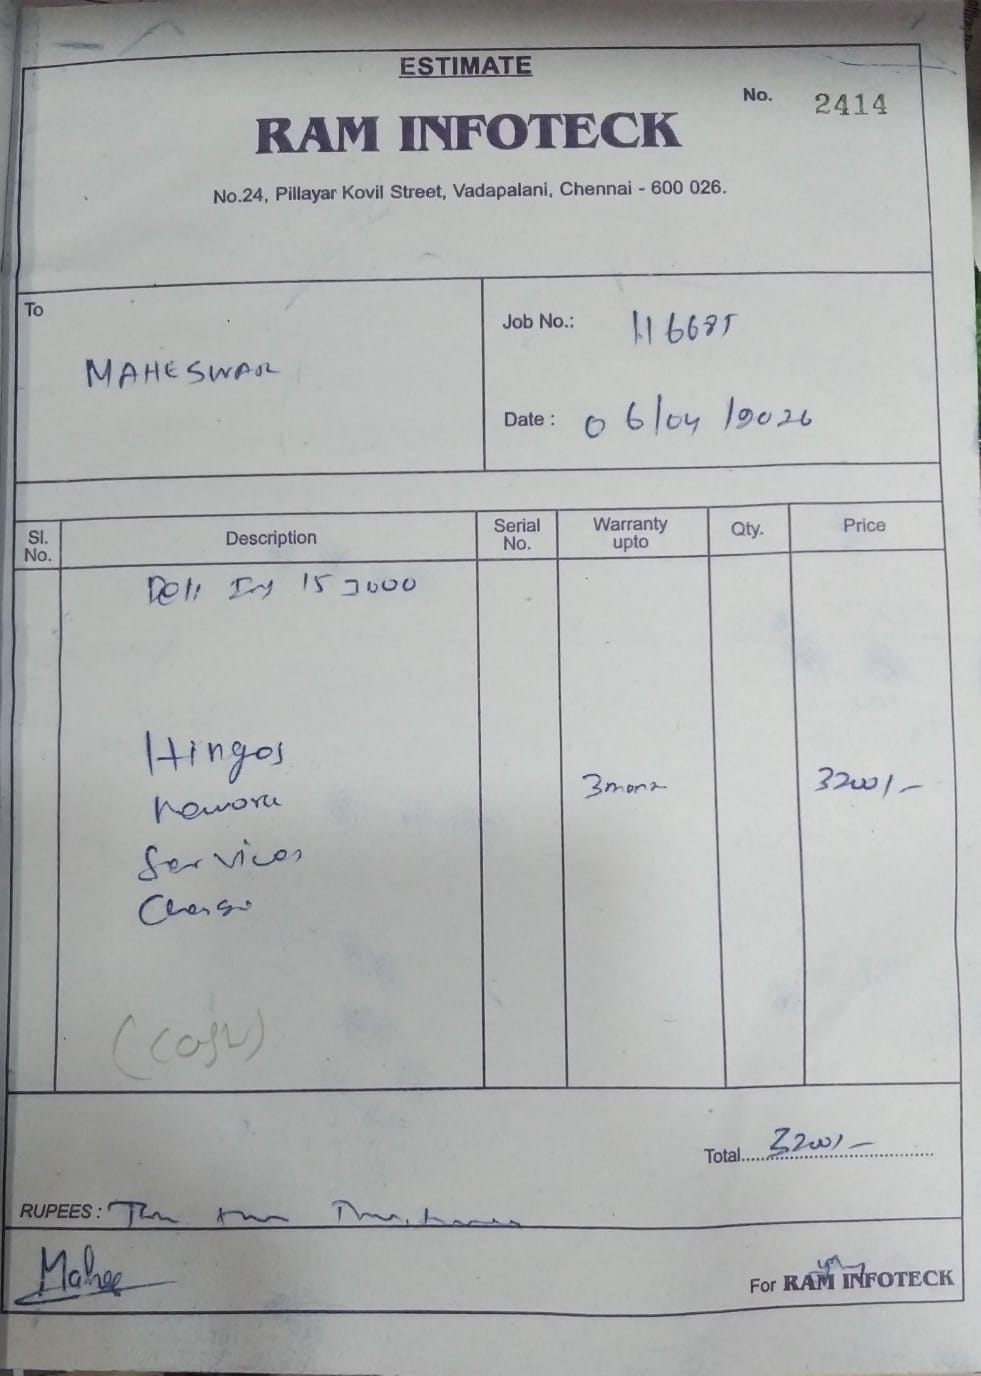 ESTIMATE
No. 2414
RAM INFOTECK
No.24, Pillayar Kovil Street, Vadapalani, Chennai - 600 026.
To
MAHESWAR
Job No.: 116685
Date : 06/04/2026
Sl. No. Description Serial No. Warranty upto Qty. Price
Dell 15 3000
Hinges
3 3200/-
Services
(Cash)
Total 3200/-
RUPEES :
Mahee
For RAM INFOTECK